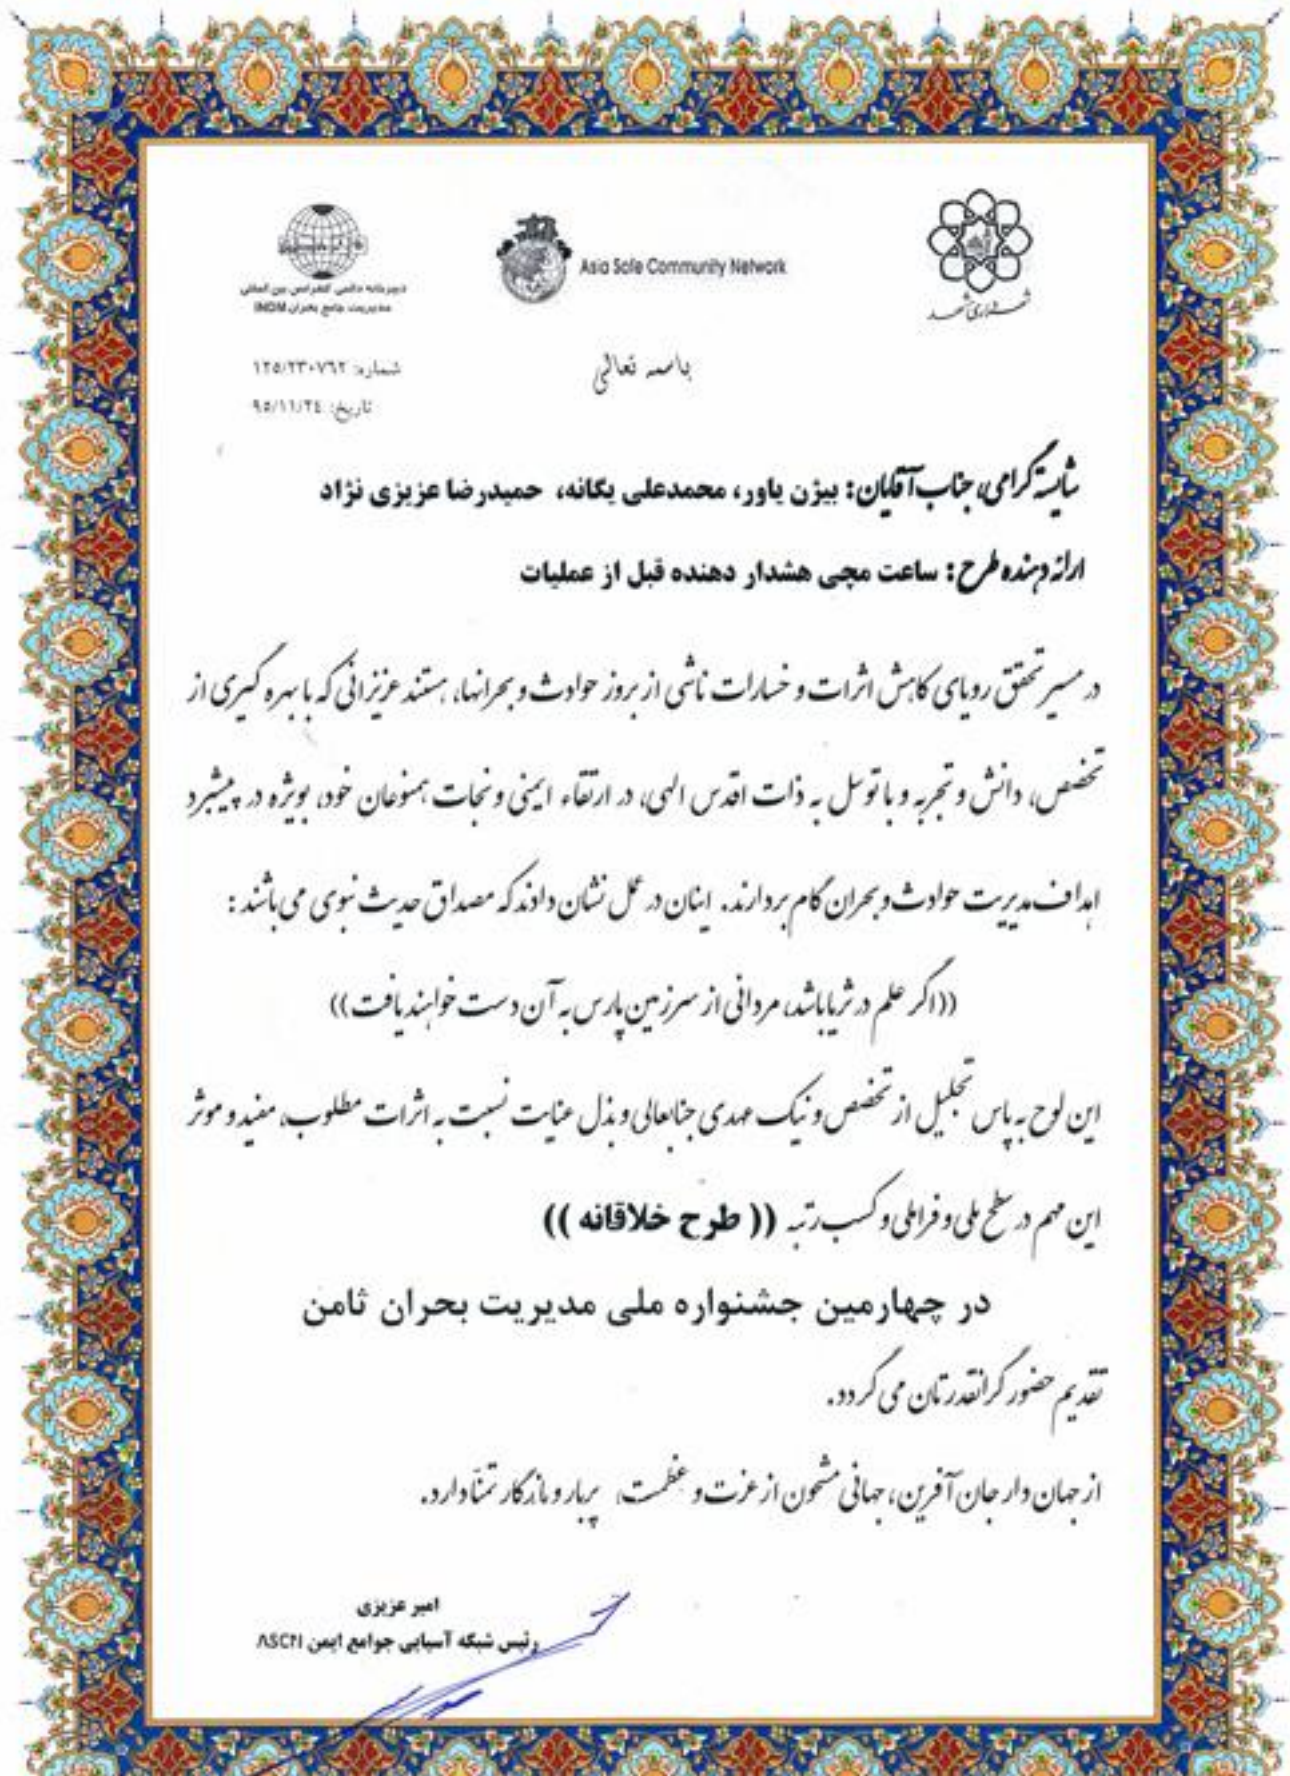 شهرداری مشهد
Asia Safe Community Network
دبیرخانه دائمی کنفرانس بین المللی
مدیریت جامع بحران INDM
باسمه تعالی
شماره: ۱۲۵/۲۳۰۷۶۲
تاریخ: ۹۵/۱۱/۲۴
شایسته گرامی، جناب آقایان: بیژن یاور، محمدعلی یگانه، حمیدرضا عزیزی نژاد
ارائه دهنده طرح: ساعت مچی هشدار دهنده قبل از عملیات
در مسیر تحقق رویای کاهش اثرات و خسارات ناشی از بروز حوادث و بحرانها، هستند عزیزانی که با بهره گیری از
تخصص، دانش و تجربه و با توسل به ذات اقدس الهی، در ارتقاء ایمنی و نجات همنوعان خود، بویژه در پیشبرد
اهداف مدیریت حوادث و بحران گام بردارند. اینان در عمل نشان دادند که مصداق حدیث نبوی می باشند :
((اگر علم در ثریا باشد، مردانی از سرزمین پارس به آن دست خواهند یافت))
این لوح به پاس تجلیل از تخصص و نیک عهدی جنابعالی و بذل عنایت نسبت به اثرات مطلوب، مفید و موثر
این مهم در سطح ملی و فراملی و کسب رتبه (( طرح خلاقانه ))
در چهارمین جشنواره ملی مدیریت بحران ثامن
تقدیم حضور گرانقدرتان می گردد.
از جهان دار جان آفرین، جهانی مشحون از عزت و عظمت، پربار و ماندگار تمنّا دارد.
امیر عزیزی
رئیس شبکه آسیایی جوامع ایمن ASCN